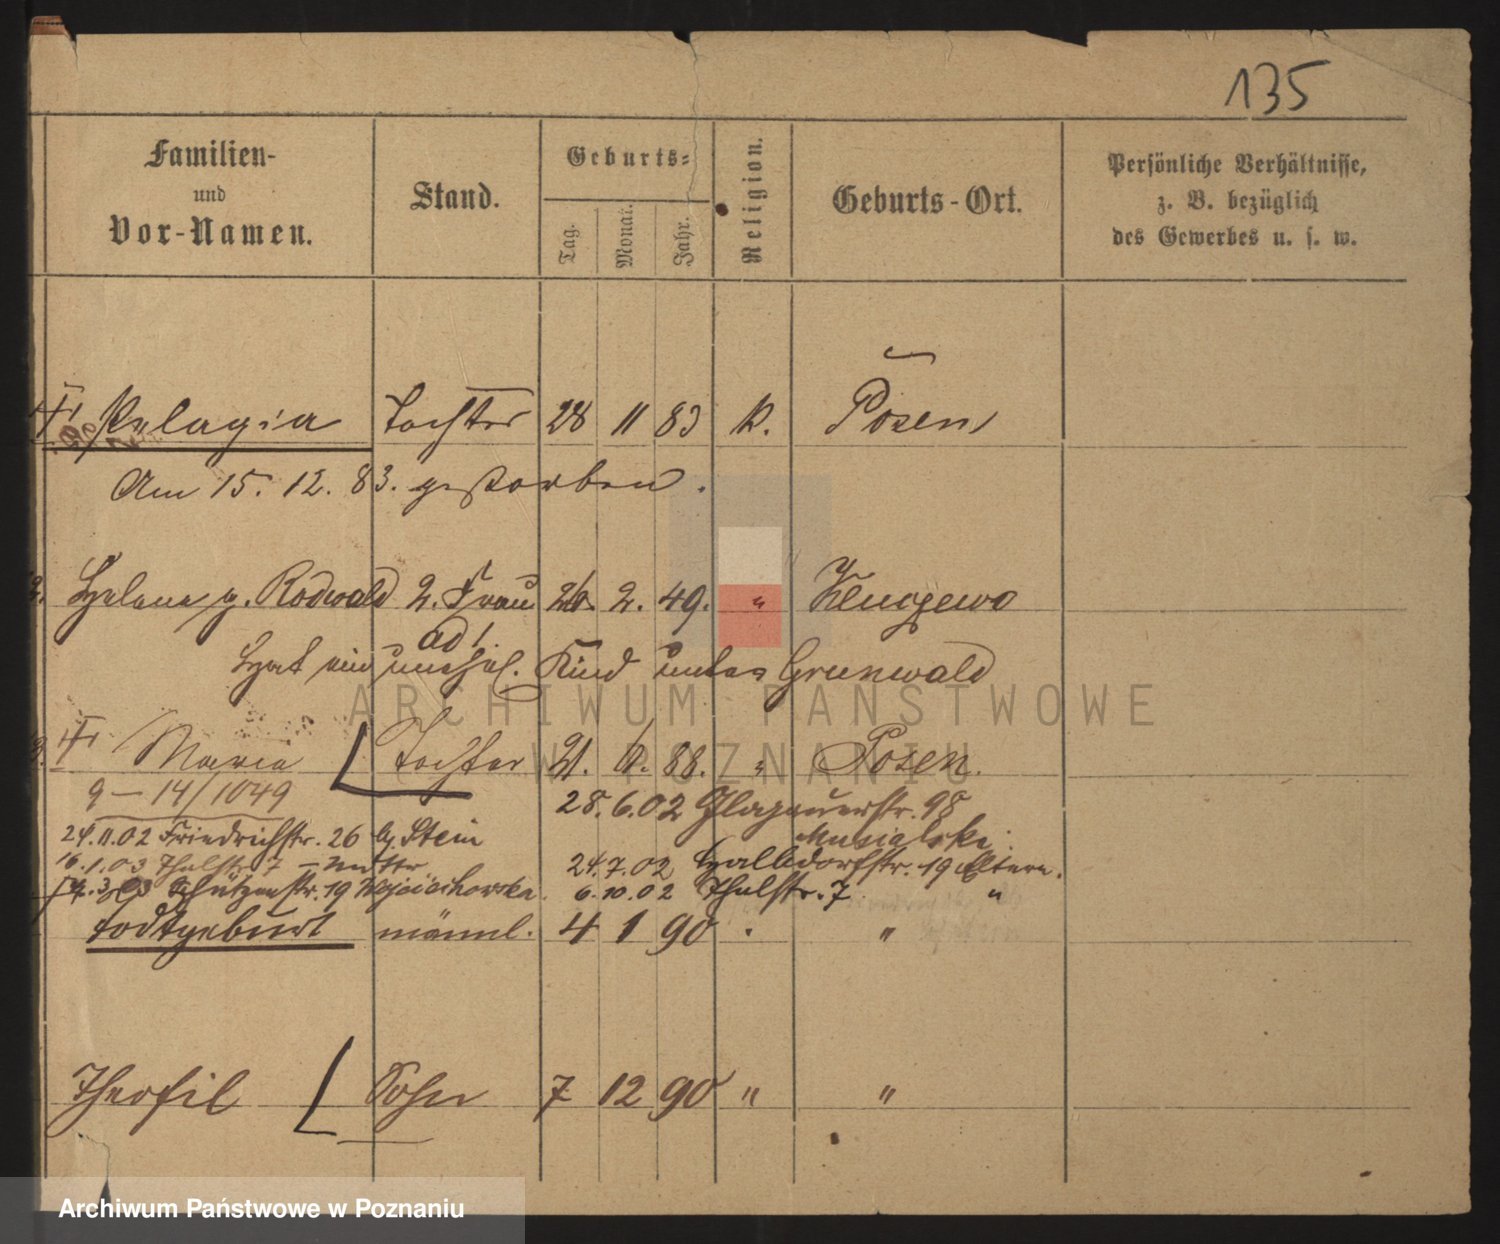 135
Familien-
und
Vor-Namen.
Stand.
Geburts-
Tag.
Monat.
Jahr.
Religion.
Geburts-Ort.
Persönliche Verhältnisse,
z. B. bezüglich
des Gewerbes u. s. w.
Pelagia Tochter 28 11 83 k. Posen
Am 15. 12. 83. gestorben.
2. Helene g. Rodwald 2. Frau 26. 2. 49. " 
ad 1.
Hat ein unehel. Kind Grunwald
Maria Tochter 21. 6. 88. " Posen.
9 — 14/1049
28. 6. 02 Glogauerstr. 98
Musialski.
24. 11. 02 Friedrichstr. 26 b. Stein
24. 7. 02 Halbdorfstr. 19 Eltern.
16. 1. 03 Thalstr. 7 — Mutter
6. 10. 02 Thalstr. 7 "
3. 03 Schützenstr. 19 Wojciechowska.
todtgeburt männl. 4 1 90 "
Theofil Sohn 7 12 90 " "
ARCHIWUM PAŃSTWOWE
W POZNANIU
Archiwum Państwowe w Poznaniu